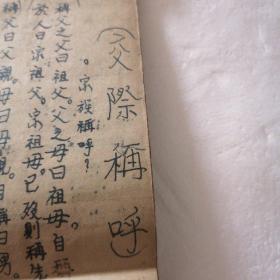 (交際稱呼)
。宗族稱呼？
稱父之父曰祖父。父之母曰祖母。自
於人曰宗祖父。宗祖母。已歿則稱先
父曰父親。母曰母親。自稱曰男。